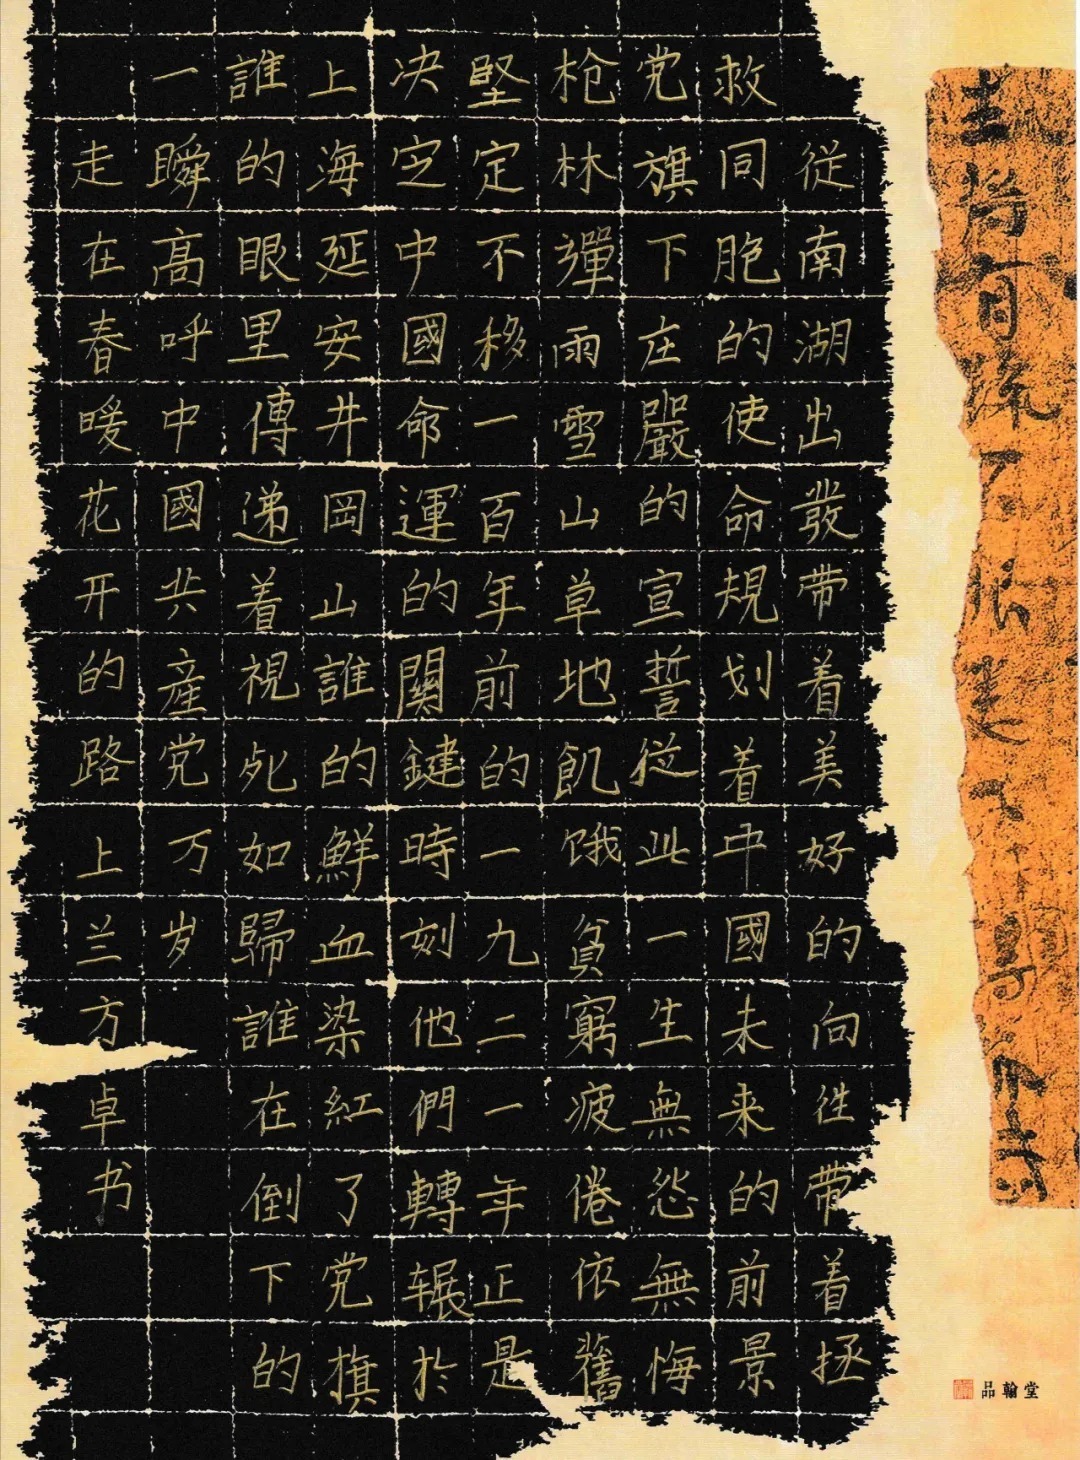 従南湖出發带着美好的向往带着拯
救同胞的使命規划着中國未来的前景
党旗下庄嚴的宣誓従此一生無怨無悔
枪林彈雨雪山草地飢饿貧窮疲倦依舊
堅定不移一百年前的一九二一年正是
决定中國命運的關鍵時刻他們轉辗於
上海延安井岡山誰的鮮血染紅了党旗
誰的眼里傳递着視死如歸誰在倒下的
一瞬高呼中國共産党万岁
走在春暖花开的路上兰方卓书
品翰堂